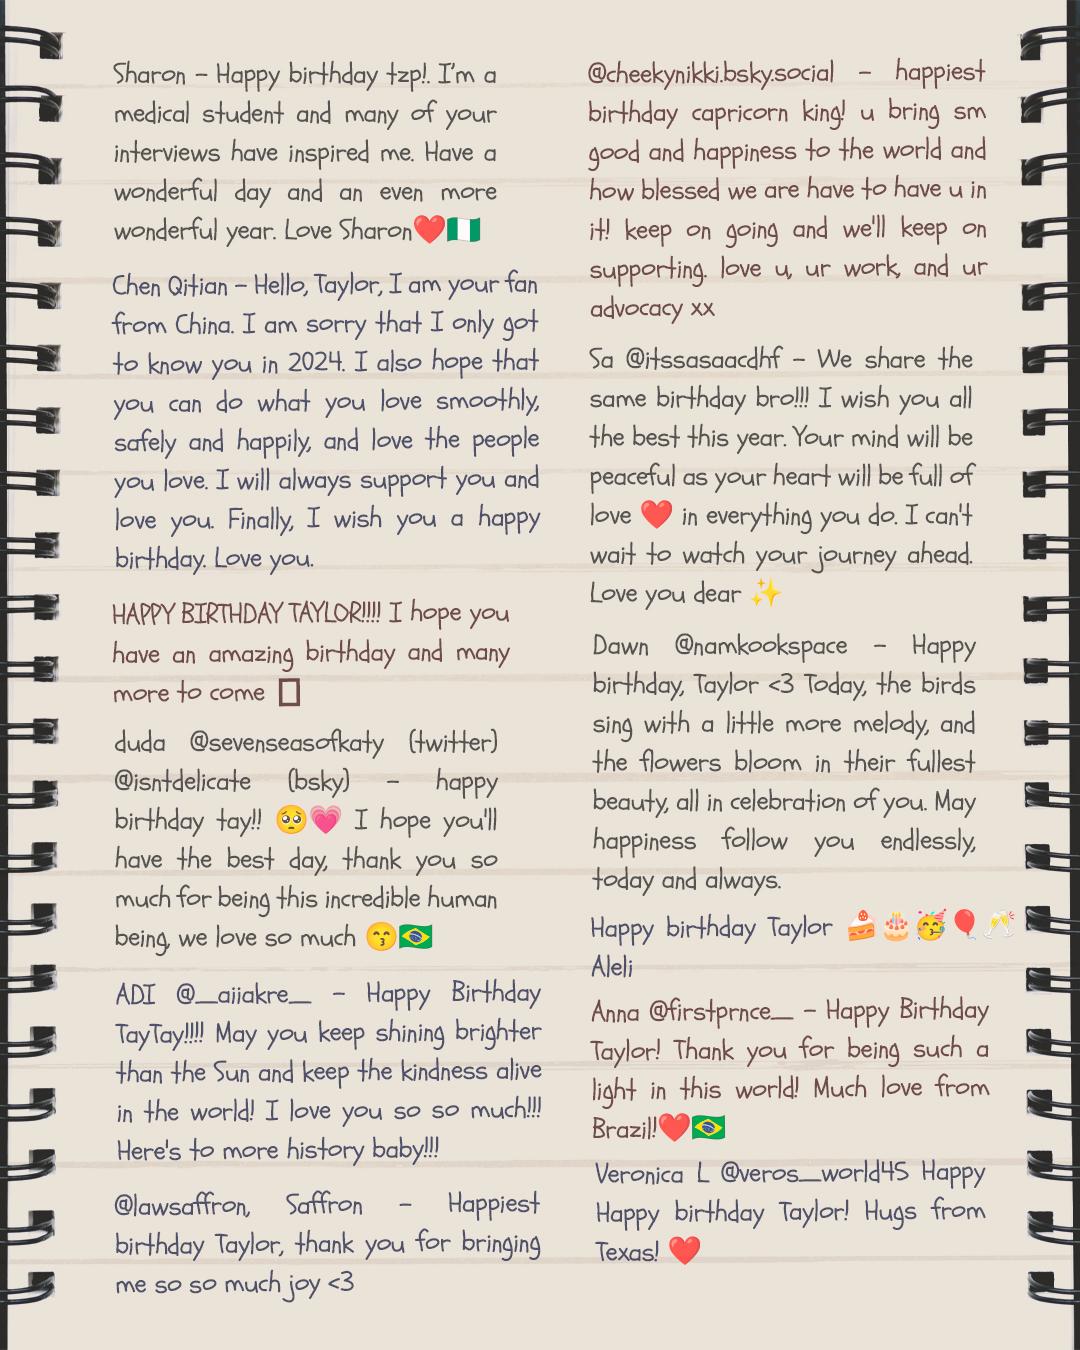 Sharon - Happy birthday tzp!. I'm a
medical student and many of your
interviews have inspired me. Have a
wonderful day and an even more
wonderful year. Love Sharon❤️🇳🇬
Chen Qitian - Hello, Taylor, I am your fan
from China. I am sorry that I only got
to know you in 2024. I also hope that
you can do what you love smoothly,
safely and happily, and love the people
you love. I will always support you and
love you. Finally, I wish you a happy
birthday. Love you.
HAPPY BIRTHDAY TAYLOR!!!! I hope you
have an amazing birthday and many
more to come
duda @sevenseasofkaty (twitter)
@isntdelicate (bsky) - happy
birthday tay!! 🥺💗 I hope you'll
have the best day, thank you so
much for being this incredible human
being, we love so much 😙🇧🇷
ADI @__aiiakre__ - Happy Birthday
TayTay!!!! May you keep shining brighter
than the Sun and keep the kindness alive
in the world! I love you so so much!!!
Here's to more history baby!!!
@lawsaffron, Saffron - Happiest
birthday Taylor, thank you for bringing
me so so much joy <3
@cheekynikki.bsky.social - happiest
birthday capricorn king! u bring sm
good and happiness to the world and
how blessed we are have to have u in
it! keep on going and we'll keep on
supporting. love u, ur work, and ur
advocacy xx
Sa @itssasaacdhf - We share the
same birthday bro!!! I wish you all
the best this year. Your mind will be
peaceful as your heart will be full of
love ❤️ in everything you do. I can't
wait to watch your journey ahead.
Love you dear ✨
Dawn @namkookspace - Happy
birthday, Taylor <3 Today, the birds
sing with a little more melody, and
the flowers bloom in their fullest
beauty, all in celebration of you. May
happiness follow you endlessly,
today and always.
Happy birthday Taylor 🍰🎂🥳🎈🥂
Aleli
Anna @firstprnce__ - Happy Birthday
Taylor! Thank you for being such a
light in this world! Much love from
Brazil!❤️🇧🇷
Veronica L @veros__world45 Happy
Happy birthday Taylor! Hugs from
Texas! ❤️